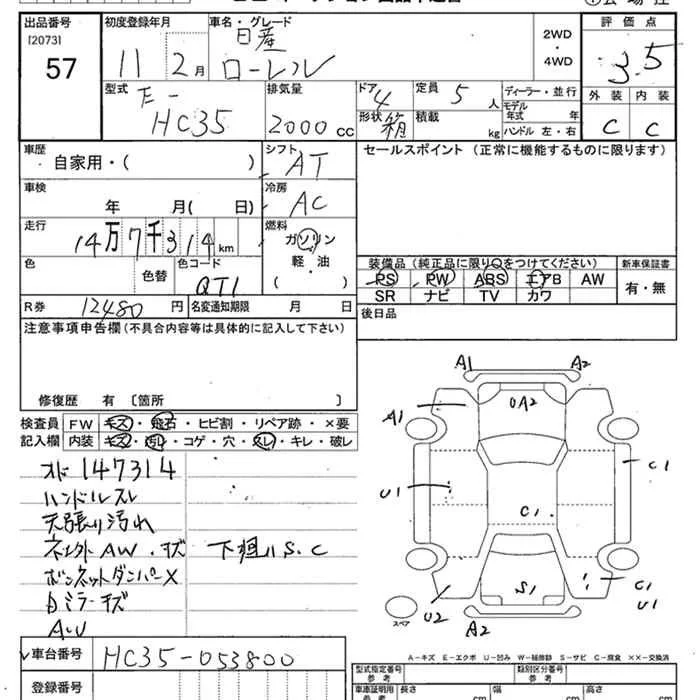 出品番号 初度登録年月 車名・グレード 評価点
[2073] 日産 2WD
57 11 2月 ローレル ・ 3.5
4WD
型式 排気量 ドア 定員 ディーラー・並行 外装 内装
E- 4 5人 モデル
HC35 2000cc 形状 箱 積載 kg 年式 年 C C
ハンドル 左・右
車歴 シフト セールスポイント (正常に機能するものに限ります)
自家用・( ) AT
車検 冷房
年 月( 日) AC
走行 燃料
14万7千314km ガソリン
軽・油
色 色替 色コード ( ) 装備品 (純正品に限り○をつけてください) 新車保証書
QT1 PS PW ABS エアB AW 有・無
R券 12480円 名変通知期限 月 日 SR ナビ TV カワ
注意事項申告欄 (不具合内容等は具体的に記入して下さい) 後日品
修復歴 有 〔箇所 〕
検査員 FW キズ・飛石・ヒビ割・リペア跡・×要
記入欄 内装 キズ・汚レ・コゲ・穴・スレ・キレ・破レ
オド 147314
ハンドルスレ
天張り汚れ
ネ社外AW・キズ 下廻りS.C
ボンネットダンパーX
ミラーキズ
A.U
A1 A2
A1 UA2
U1 C1 C1
U2 S1 C1
U1
スペア A2
A-キズ E-エクボ U-凹み W-補修跡 S-サビ C-腐食 ××-交換済
車台番号 HC35-053800
型式指定番号 類別区分番号
参考 参考
登録番号 車庫証明用 長さ 幅 高さ
参考 cm cm cm